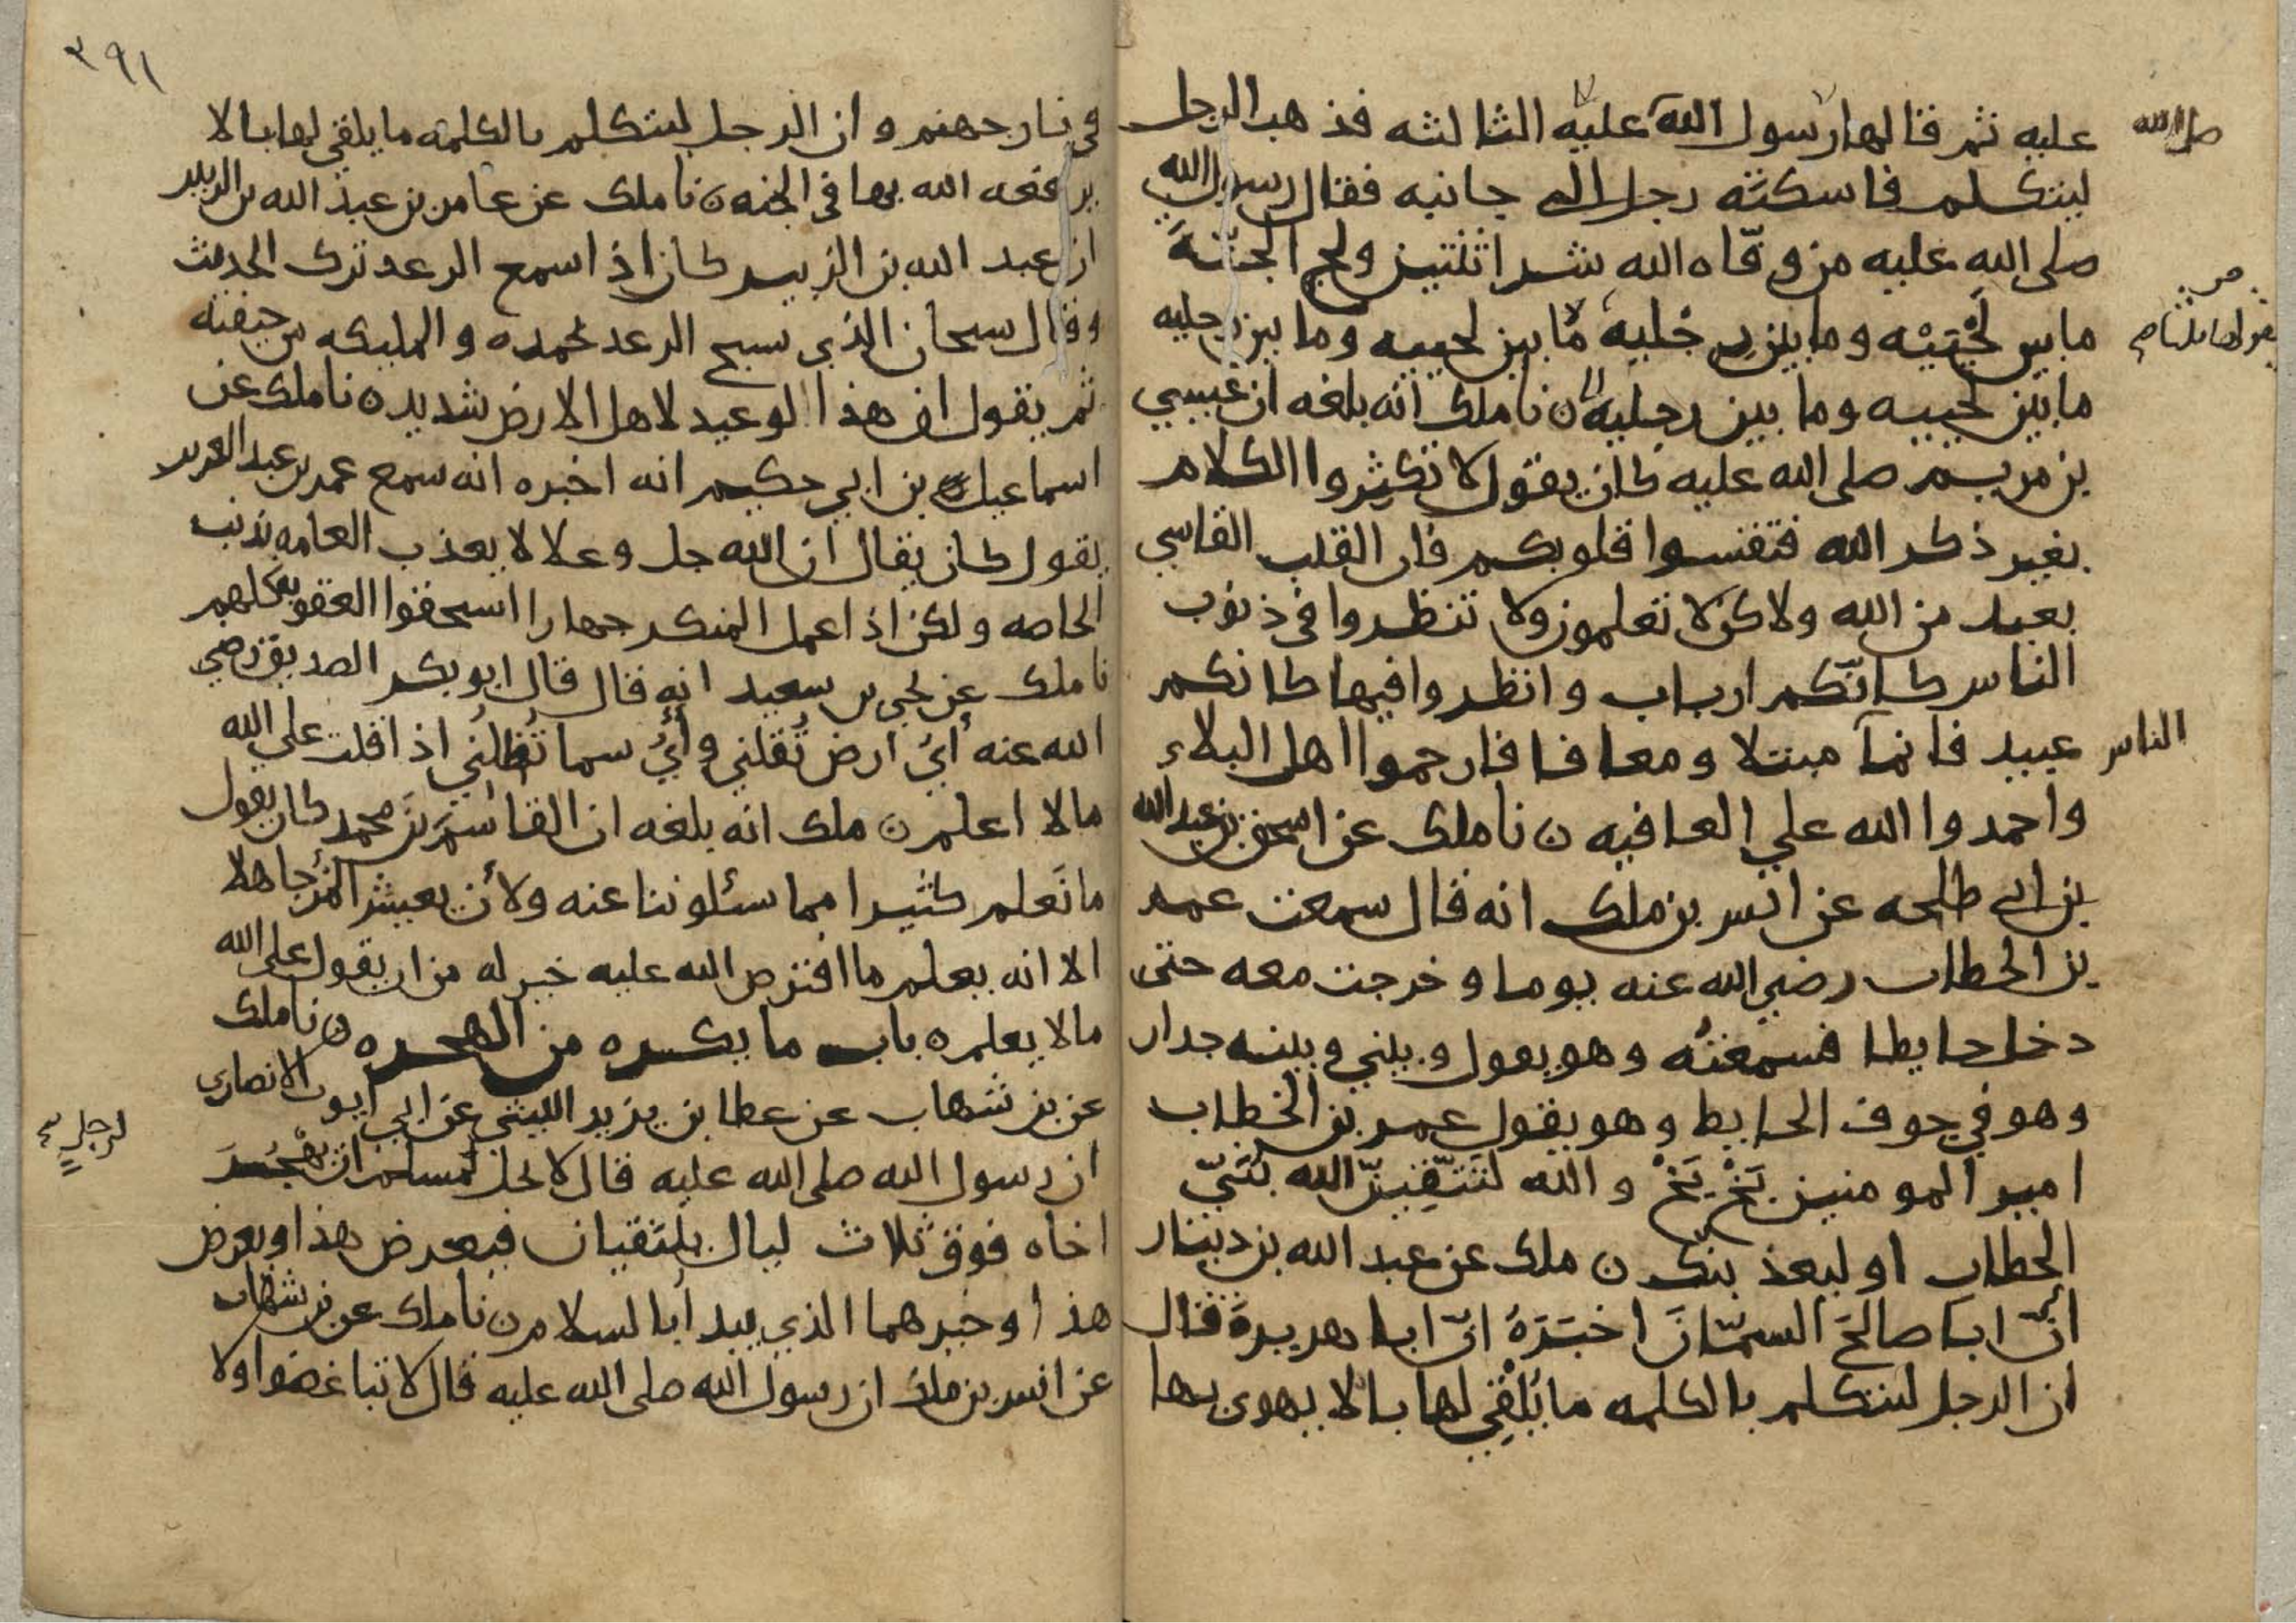 عليه ثم قالها رسول الله عليه الثالثه فذهب الرجل
صلى الله
ليتكلم فاسكته رجل الى جانبه فقال رسول الله
صلى الله عليه من وقّاه الله شر اثنتين ولج الجنّةَ
ما بين لَحْيَيْه وما بين رِجْليه ما بين لحييه وما بين رجليه
ما بين لحييه وما بين رجليه ن نا ملك انه بلغه ان عيسي
بن مريم صلى الله عليه كان يقول لا تكثروا الكلام
بغير ذكر الله فتقسوا قلوبكم فان القلب القاسي
بعيد من الله ولاكن لا تعلمون ولا تنظروا في ذنوب
الناس كانّكم ارباب وانظروا فيها كانكم
عبيد فانما مبتلا ومعافا فارحموا اهل البلاء
الناس
واحمدوا الله علي العافيه ن نا ملك عن اسحق بن عبد الله
بن ابي طلحه عن انس بن ملك انه قال سمعت عمر
بن الخطاب رضي الله عنه يوما وخرجت معه حتى
دخل حايطا فسمعتُه وهو يعول وبيني وبينه جدار
وهو في جوف الحايط وهو يقول عمر بن الخطاب
امير المومنين بَخْ بَخْ والله لتتّقينّ الله بُنَيّ
الخطاب او ليعذبنك ن ملك عن عبد الله بن دينار
انّ ابا صالحَ السمّانَ اخبَرَهُ انّ ابا هريرةَ قال
ان الرجل ليتكلم بالكلمه ما يُلْقِي لها بالا يهوى بها
٣٩١
في نار جهنم وان الرجل ليتكلم بالكلمه ما يلقي لها بالا
يرفعه الله بها في الجنه ن نا ملك عن عامر بن عبد الله بن الزبير
ان عبد الله بن الزبير كان اذا سمع الرعد ترك الحديث
وقال سبحان الذي سبح الرعد بحمده والمليكه من خيفته
ثم يقول ان هذا الوعيد لاهل الارض شديد ن نا ملك عن
اسماعيل بن ابي حكيم انه اخبره انه سمع عمر بن عبد العزيز
يقول كان يقال ان الله جل وعلا لا يعذب العامه بذنب
الخاصه ولكن اذا عمل المنكر جهارا استحقوا العقوبه كلهم
نا ملك عن يحيى بن سعيد انه قال قال ابو بكر الصديق رضي
الله عنه أيُ ارض تُقلني وأيُ سما تُظلني اذا قلت علي الله
ما لا اعلم ن ملك انه بلغه ان القاسم بن محمد كان يقول
ما نَعلم كثيرا مما سئلوننا عنه ولأن يعيش المرُ جاهلا
الا انه يعلم ما افترض الله عليه خير له من ان يقول على الله
ما لا يعلم ن باب ما يكره من الهجره ن نا ملك
عن بن شهاب عن عطا بن يزيد الليثي عن ابي ايوب الانصاري
ان رسول الله صلى الله عليه قال لا يحل لمسلم ان يهْجُرَ
لرجل
اخاه فوق ثلاث ليال يلتقيان فيعرض هذا ويعرض
هذا وخيرهما الذي يبدأ بالسلام ن نا ملك عن بن شهاب
عن انس بن ملك ان رسول الله صلى الله عليه قال لا تباغضوا ولا